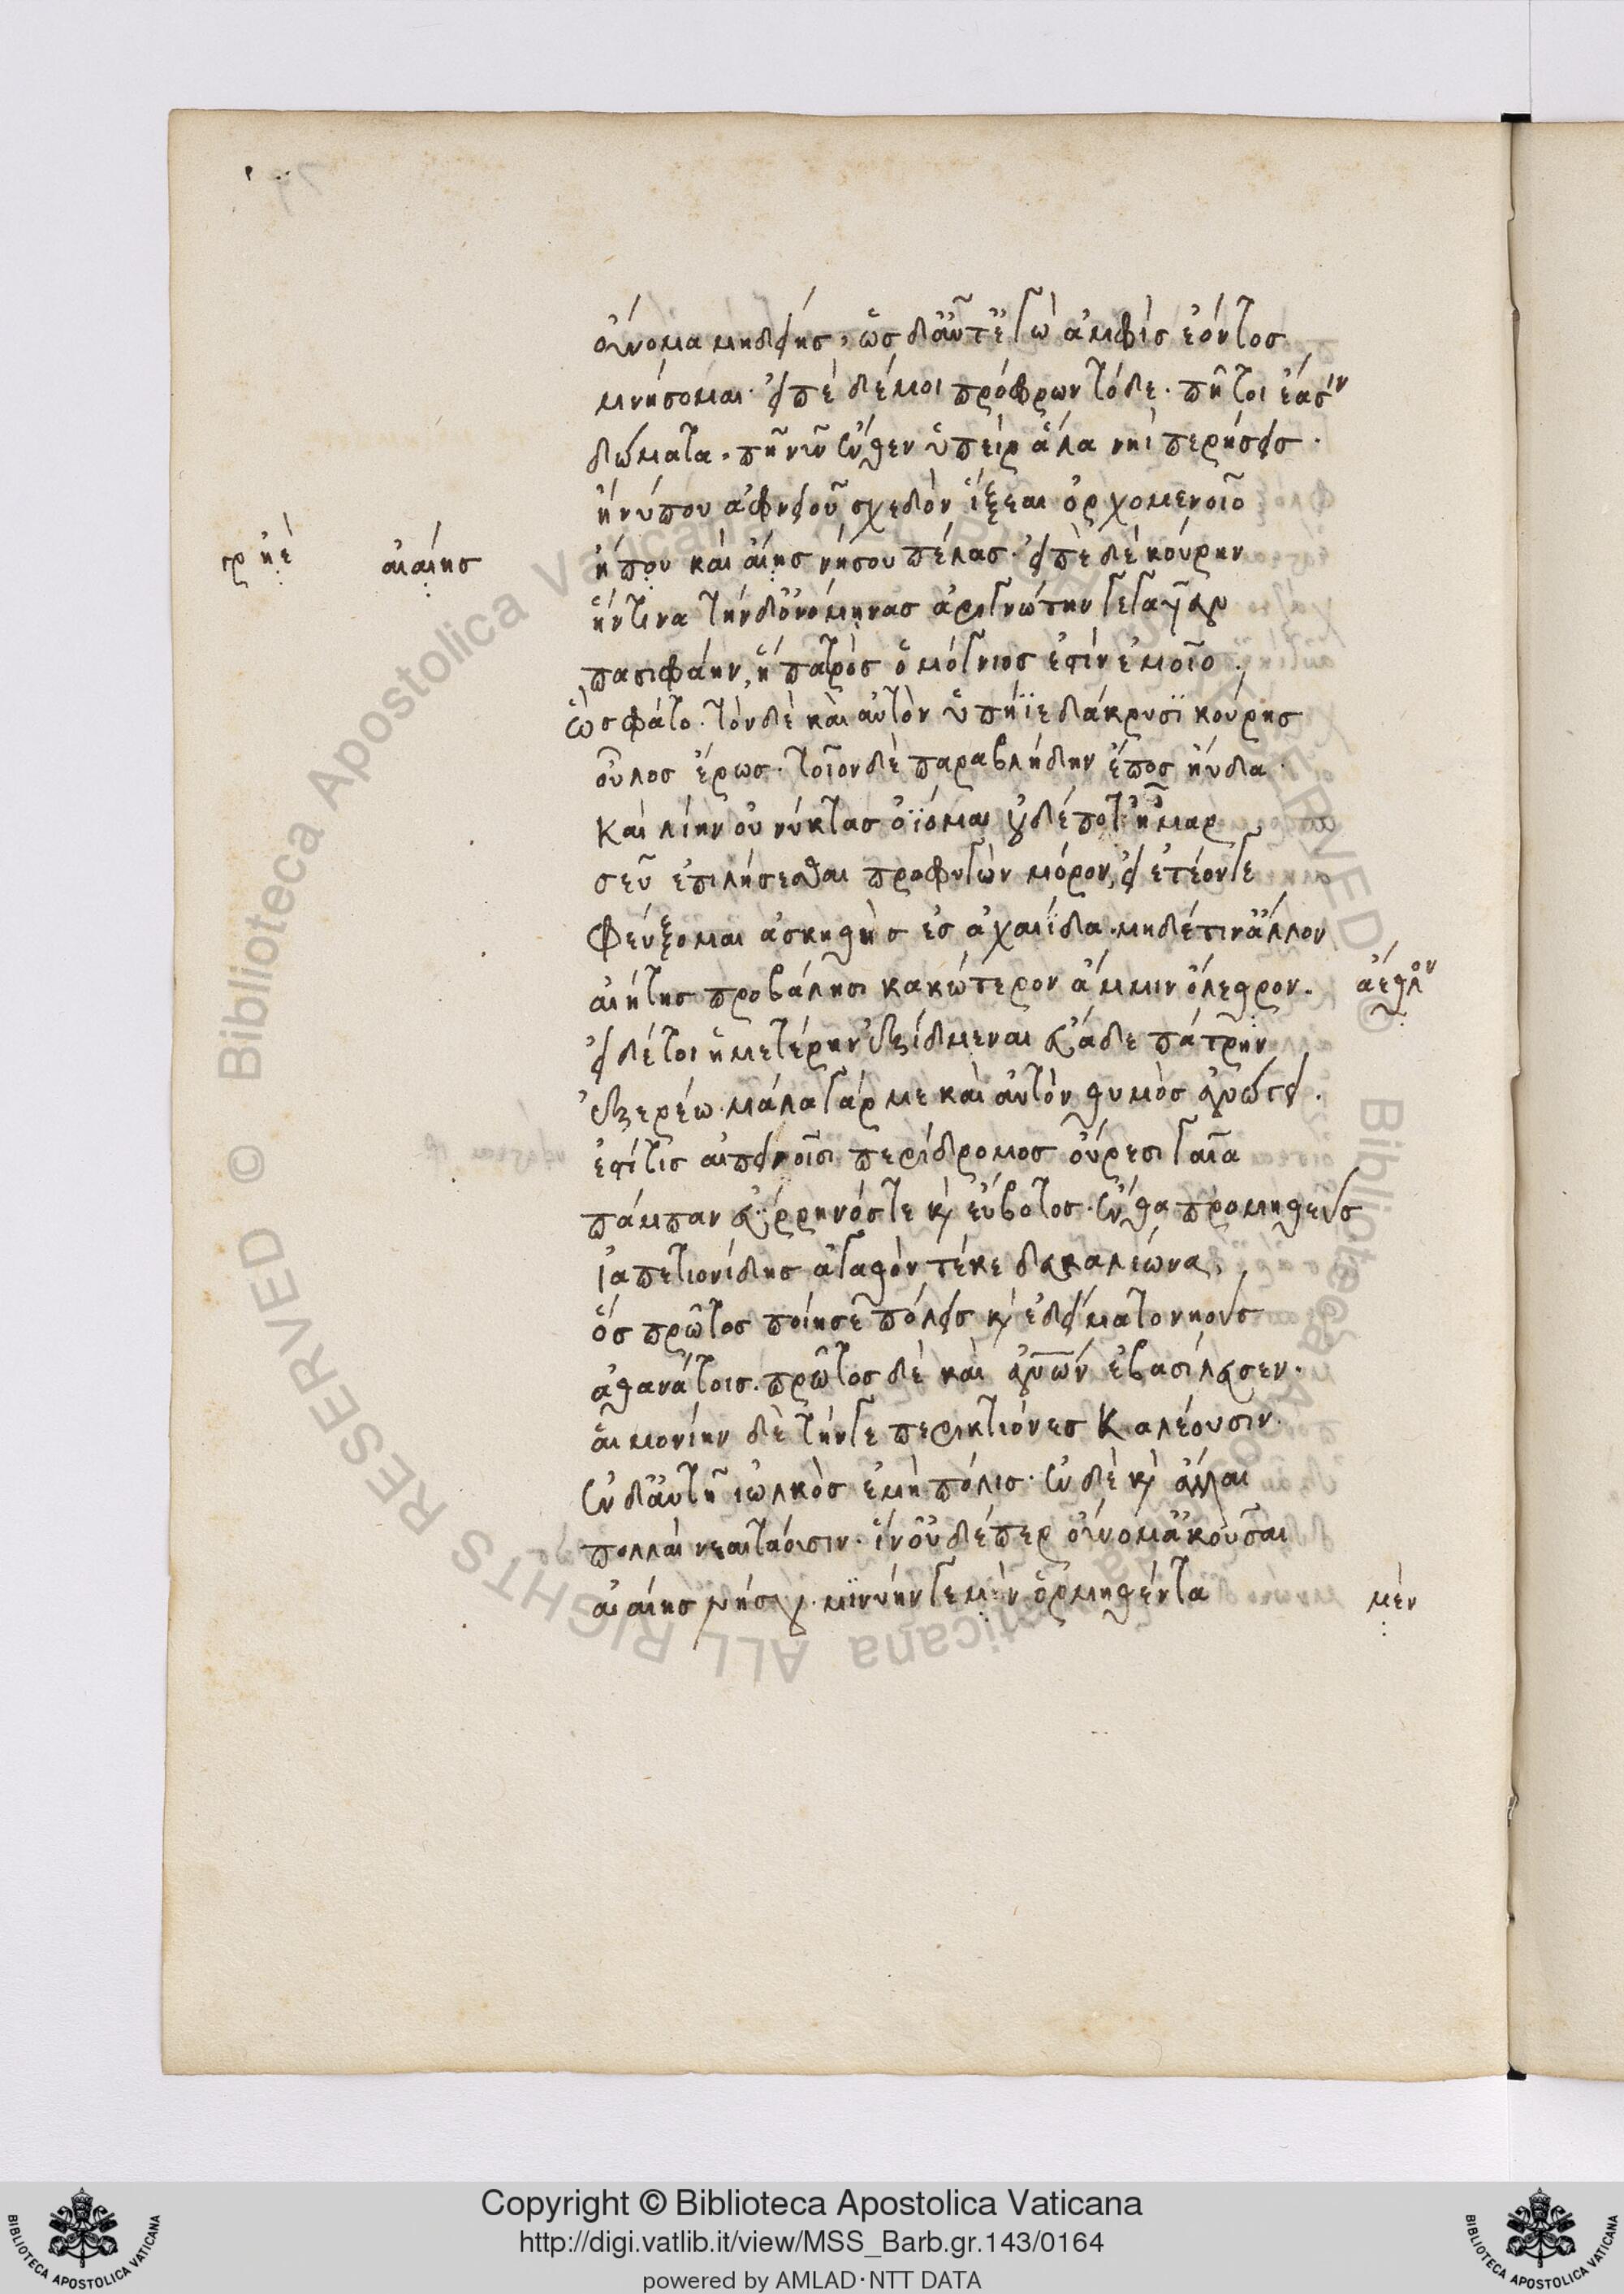 οὔνομα μηδείης· ὣς δ' αὖτ' ἐγὼ ἀμφὶς ἐόντος
μνήσομαι· εἰπὲ δέ μοι πρόφρων τόδε· πῆ τοι ἔασιν
δώματα. πῆ νῦν ἔνθεν ὑπεὶρ ἅλα νηῒ περήσεις.
ἤ νύ που ἀφνειοῦ σχεδὸν ἵξεαι ὀρχομενοῖο
ἤ που καὶ αἴης νήσου πέλας· εἰπὲ δὲ κούρην
γρ ἠὲ
αἰαίης
ἥντινα τήνδ' ὀνόμηνας ἀριγνώτην γεγαυῖαν
πασιφάην, ἣ πατρὸς ὁμόγνιος ἐστὶν ἐμοῖο.
ὣς φάτο. τὸν δὲ καὶ αὐτὸν ὑπήϊε δάκρυσϊ κούρης
οὖλος ἔρως. τοῖον δὲ παραβλήδην ἔπος ηὔδα.
καὶ λίην οὐ νύκτας ὀΐομαι οὐδέ ποτ' ἦμαρ
σεῦ ἐπιλήσεσθαι προφυγὼν μόρον, εἰ ἐτεόν γε
φεύξομαι ἀσκηθὴς ἐς ἀχαιΐδα. μηδέ τιν' ἄλλον
αἰήτης προβάλησι κακώτερον ἄμμιν ὄλεθρον.
ἄεθλον
εἰ δέ τοι ἡμετέρην ἐξίδμεναι εὔαδε πάτρην
ἐξερέω. μάλα γάρ με καὶ αὐτὸν θυμὸς ἀνώγει.
ἐστί τις αἰπεινοῖσι περίδρομος οὔρεσι γαῖα
πάμπαν εὔρρηνός τε καὶ εὔβοτος. ἔνθα προμηθεὺς
ἰαπετιονίδης ἀγαθὸν τέκε δευκαλίωνα,
ὃς πρῶτος ποίησε πόλεις καὶ ἐδείματο νηοὺς
ἀθανάτοις. πρῶτος δὲ καὶ ἀνῶν ἐβασίλευσεν.
αἱμονίην δὲ τήνγε περικτιόνες καλέουσιν.
ἐν δ' αὐτῆ ἰωλκὸς ἐμὴ πόλις. ἐν δὲ καὶ ἄλλαι
πολλαὶ ναιετάουσιν. ἵν' οὐδέ περ οὔνομ' ἀκοῦσαι
αἰαίης νήσου. μινύην γε μὶν ὁρμηθέντα
μὲν
Copyright © Biblioteca Apostolica Vaticana
http://digi.vatlib.it/view/MSS_Barb.gr.143/0164
powered by AMLAD·NTT DATA